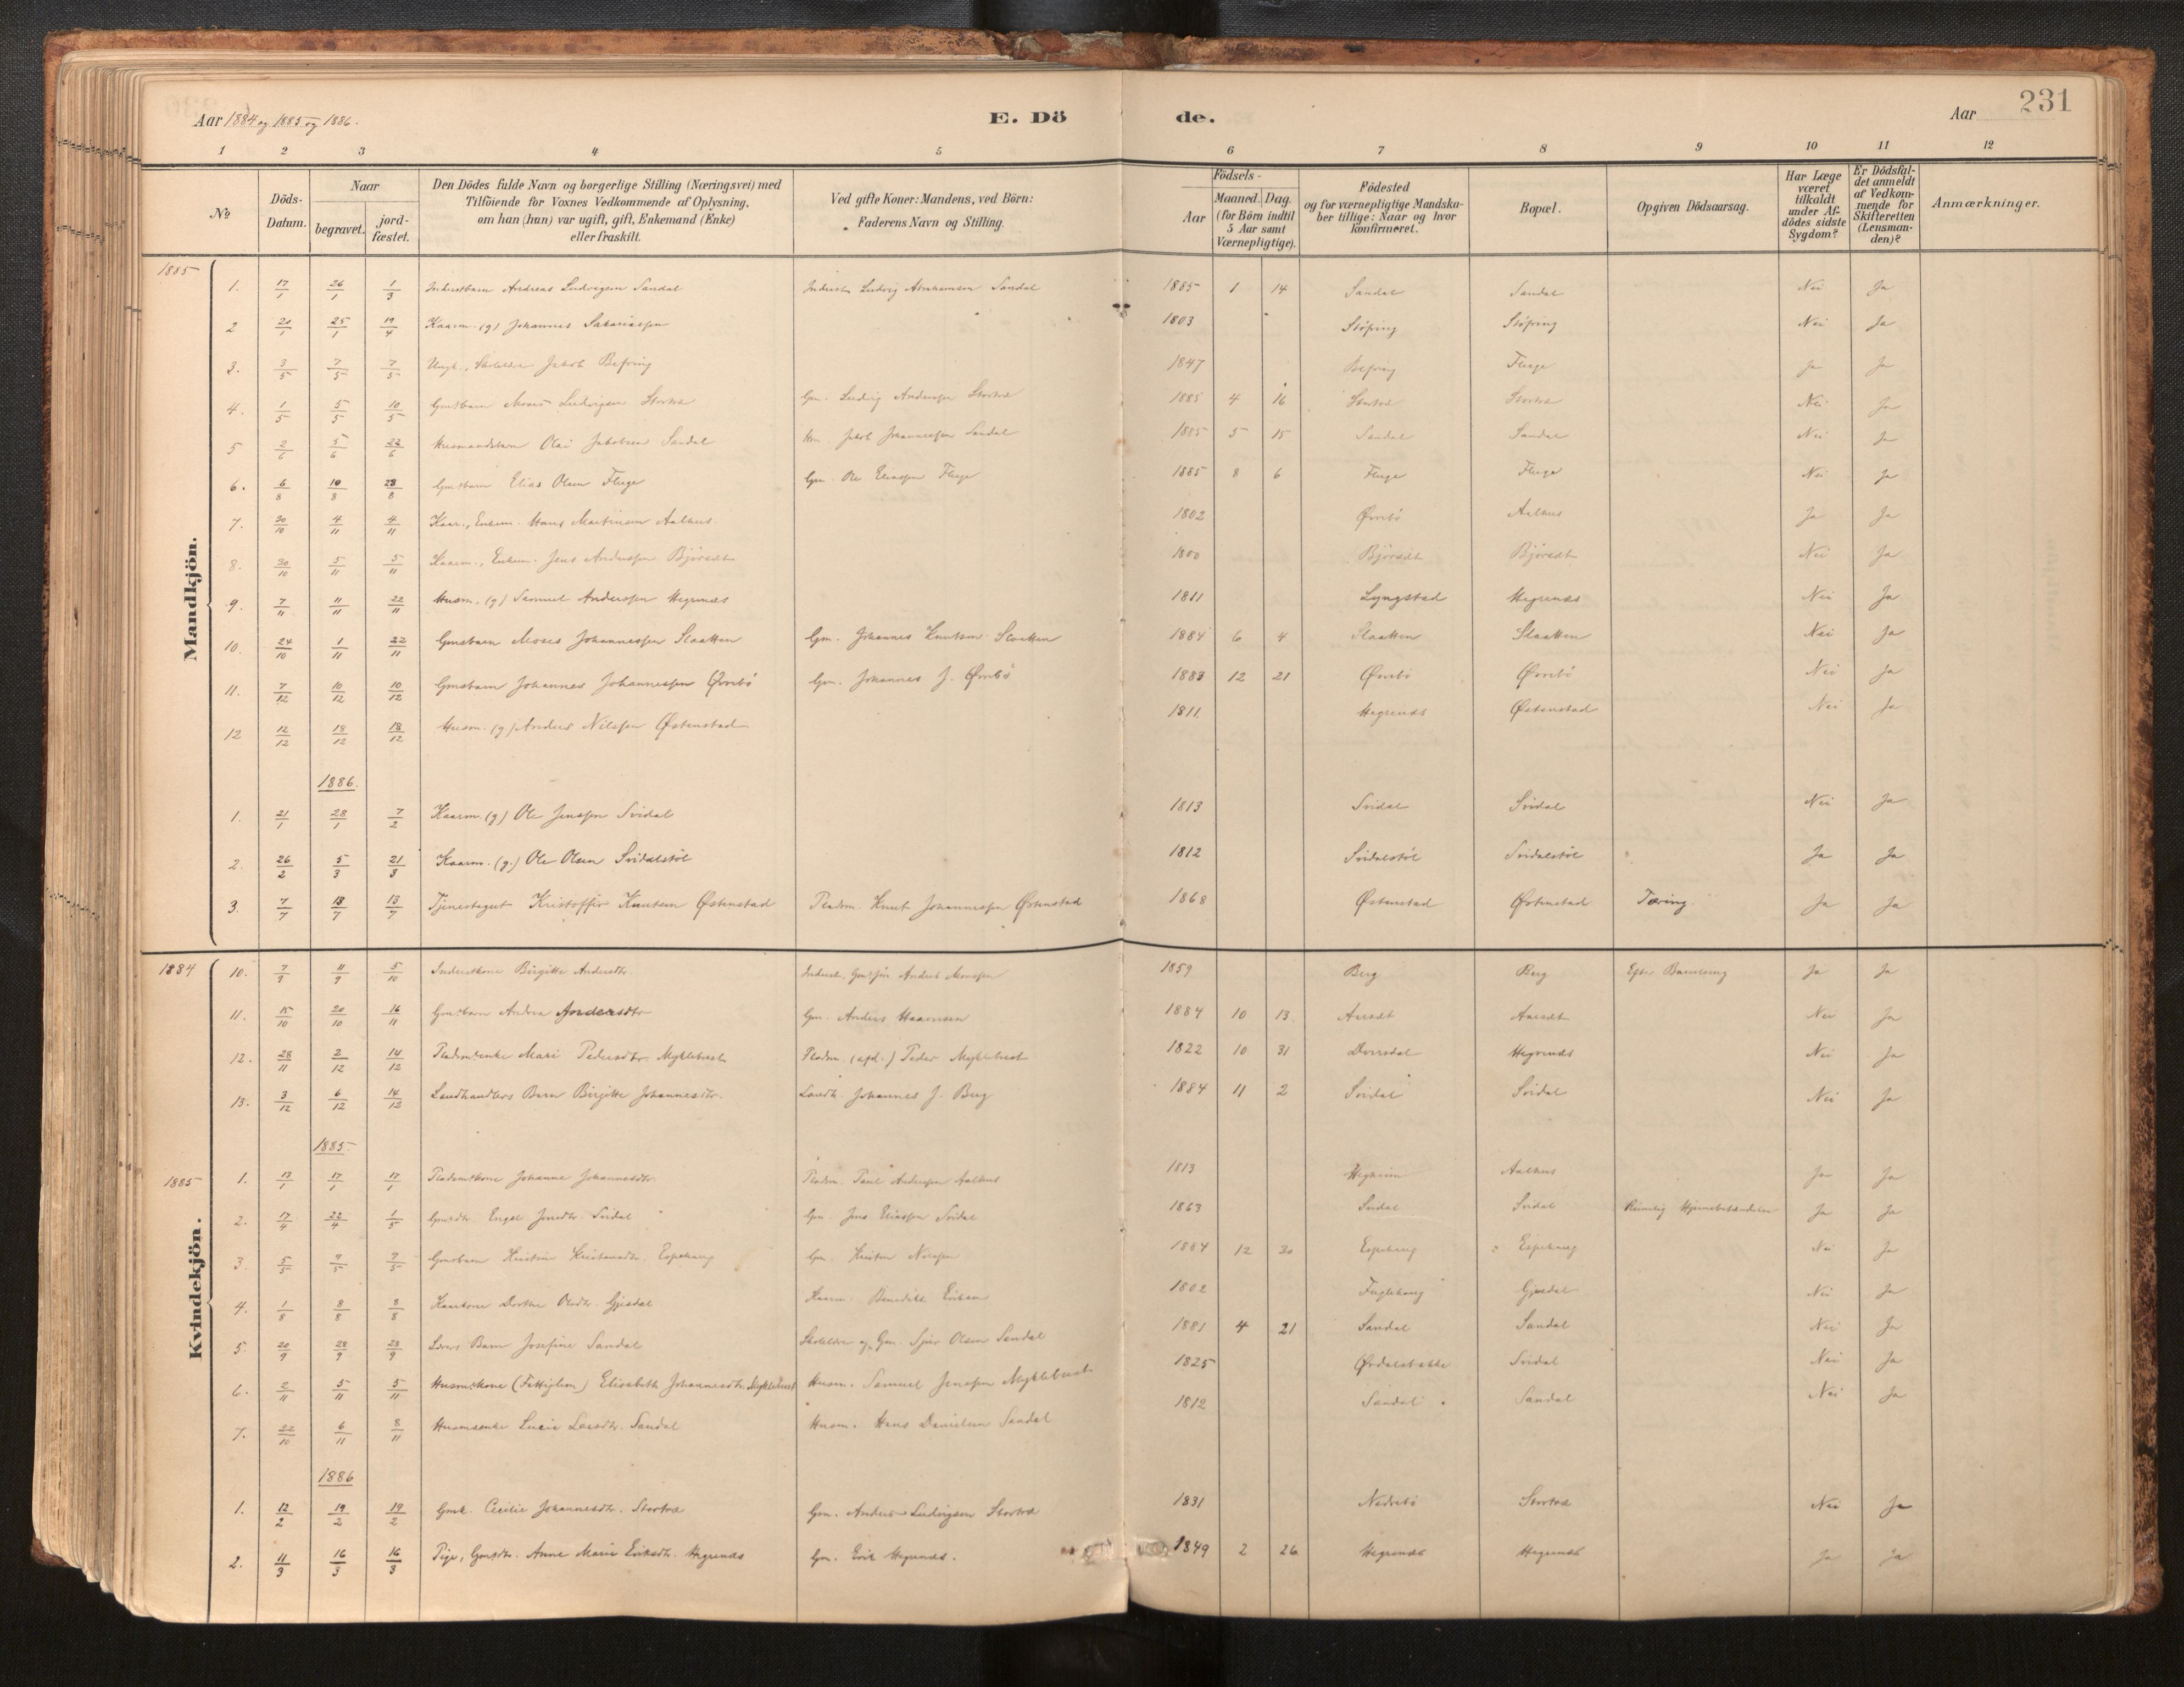 Aar 1884 og 1885 og 1886.
E. Dö
de.
Aar
231
1 2 3 4 5 6 7 8 9 10 11 12
No
Döds-Datum.
Naar
begravet.
jord-fæstet.
Den Dödes fulde Navn og borgerlige Stilling (Næringsvei) med
Tilföiende for Voxnes Vedkommende af Oplysning,
om han (hun) var ugift, gift, Enkemand (Enke)
eller fraskilt.
Ved gifte Koner: Mandens, ved Börn:
Faderens Navn og Stilling.
Födsels-
Aar
Maaned. Dag.
(for Börn indtil
5 Aar samt
Værnepligtige).
Födested
og for værnepligtige Mandska-
ber tillige: Naar og hvor
konfirmeret.
Bopæl.
Opgiven Dödsaarsag.
Har Læge
været
tilkaldt
under Af-
dödes sidste
Sygdom?
Er Dödsfal-
det anmeldt
af Vedkom-
mende for
Skifteretten
(Lensman-
den)?
Anmærkninger.
Mandkjön.
1885
1. 17/1 26/1 1/3 Inderstbarn Andreas Ludvigsen Sandal Inderst Ludvig Abrahamsen Sandal 1885 1 14 Sandal Sandal Nei Ja
2 20/1 25/1 19/4 Kaarm. (g) Johannes Sakariassen 1803 Støfring Støfring Nei Ja
3. 3/5 7/5 7/5 Ungk., Skolelærer Jakob Befring 1847 Befring Fluge Ja Ja
4. 1/5 5/5 10/5 Gmsbarn Moses Ludvigsen Stortræ Gm. Ludvig Anderssen Stortræ 1885 4 16 Stortræ Stortræ Nei Ja
5 2/6 5/6 22/6 Husmandsbarn Olai Jakobsen Sandal Hm. Jakob Johannessen Sandal 1885 5 15 Sandal Sandal Nei Ja
6. 6/8 10/8 23/8 Gmsbarn Elias Olsen Fluge Gm. Ole Eliassen Fluge 1885 8 6 Fluge Fluge Nei Ja
7. 30/10 4/11 4/11 Kaar., Enkem. Hans Martinsen Aalhus. 1802 Ørrebö Aalhus Ja Ja
8. 30/10 5/11 5/11 Kaarm., Enkem. Jens Anderssen Bjørsæt 1800 Bjørsæt Bjørsæt Nei Ja
9. 7/11 11/11 22/11 Husm. (g) Samuel Anderssen Hegrenæs 1811 Lyngstad Hegrenæs Nei Ja
10. 24/10 1/11 22/11 Gmsbarn Moses Johannessen Slaatten Gm. Johannes Knutsen Slaatten 1884 6 4 Slaatten Slaatten Nei Ja
11. 7/12 10/12 10/12 Gmsbarn Johannes Johannessen Ørrebö Gm. Johannes J. Ørrebö 1883 12 21 Ørrebö Ørrebö Nei Ja
12 12/12 18/12 18/12 Husm. (g) Anders Nilssen Østenstad 1811. Hegrenæs Østenstad Nei Ja
1886.
1. 21/1 28/1 7/2 Kaarm. (g) Ole Jenssen Svidal 1813 Svidal Svidal Nei Ja
2. 26/2 5/3 21/3 Kaarm. (g.) Ole Olsen Svidalstöl 1812 Svidalstöl Svidalstöl Ja Ja
3. 7/7 13/7 13/7 Tjenestegut Kristoffer Knutsen Østenstad Pladsm. Knut Johannessen Østenstad 1868 Østenstad Østenstad Tæring. Ja Ja
Kvindekjön.
1884
10. 7/9 11/9 5/10 Inderstkone Birgitte Andersdtr. Inderst, Anders Monssen 1859 Berg Berg Efter Barnseng Ja Ja
11. 15/10 20/10 16/11 Gmsbarn Andrea Andersdtr Gm. Anders Haavnsen 1884 10 13. Aarsæt Aarsæt Nei Ja
12. 28/11 2/12 14/12 Pladsmsenke Mari Pedersdtr. Myklebust Pladsm. (afd.) Peder Myklebust 1822 10 31 Dvergsdal Hegrenæs Nei Ja
13. 3/12 6/12 14/12 Landhandlers Barn Birgitte Johannesdtr. Landh. Johannes J. Berg 1884 11 2 Svidal Svidal Nei Ja
1885.
1885
1. 13/1 17/1 17/1 Pladsmskone Johanne Johannesdtr. Pladsm. Paul Anderssen Aalhus 1813 Hegheim Aalhus Ja Ja
2. 17/4 22/4 1/5 Gmsdtr. Engel Jensdtr. Svidal Gm. Jens Eliassen Svidal 1863 Svidal Svidal Hjernebetændelse Ja Ja
3. 5/5 7/5 7/5 Gmsbarn Kristine Kristensdtr. Espehaug Gm. Kristen Nilssen 1884 12 30 Espehaug Espehaug Nei Ja
4. 1/8 8/8 8/8 Kaarkone Dorthe Olsdtr. Gjesdal Kaarm. Benedikt Eriksen 1802 Fuglehaug Gjesdal Nei Ja
5 20/9 28/9 28/9 Lærers Barn Josefine Sandal Skolelærer og Gm. Sjur Olsen Sandal 1881 4 21 Sandal Sandal Nei Ja
6. 2/11 5/11 5/11 Husmskone (Fattiglem) Elisabeth Johannesdtr. Myklebust Husm. Samuel Jenssen Myklebust 1825 Ørdalsbakke Svidal Nei Ja
7. 22/10 6/11 8/11 Husmsenke Lucie Larsdtr. Sandal Husm. Hans Danielsen Sandal 1812 Sandal Sandal Nei Ja
1886
1. 12/2 19/2 19/2 Gmk. Cecilie Johannesdtr. Stortræ Gm. Anders Ludvigsen Stortræ 1831 Nedrebö Stortræ Nei Ja
2. 11/3 16/3 16/3 Pige, Gmsdtr. Anne Marie Eriksdtr. Hegrenæs Gm. Erik Hegrenæs. 1849 2 26 Hegrenæs Hegrenæs Ja Ja